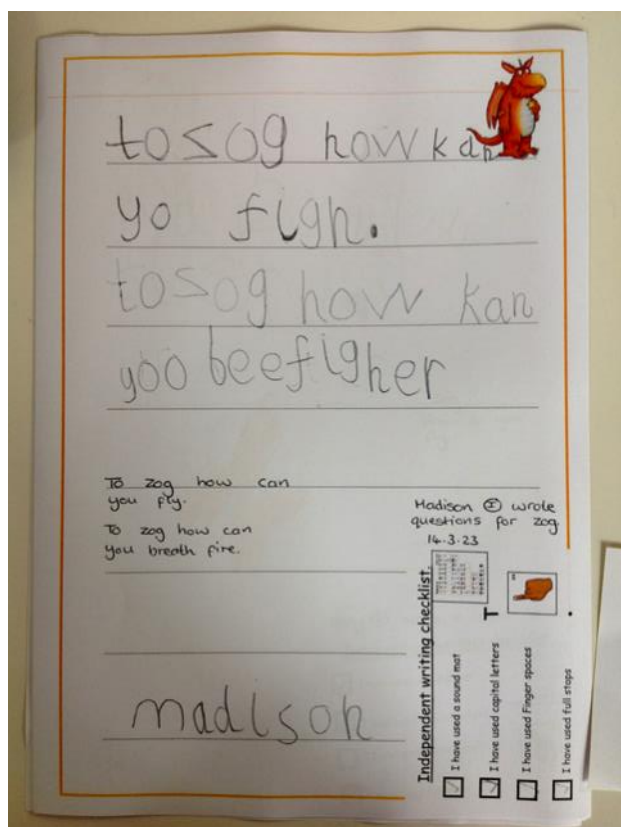 to zog how kan
yo figh.
to zog how kan
yoo beefigher
To zog how can
you fly.
To zog how can
you breath fire.
Madison I wrote
questions for zog.
14.3.23
madison
Independent writing checklist.
I have used a sound mat
I have used capital letters
T
I have used Finger spaces
I have used full stops
.